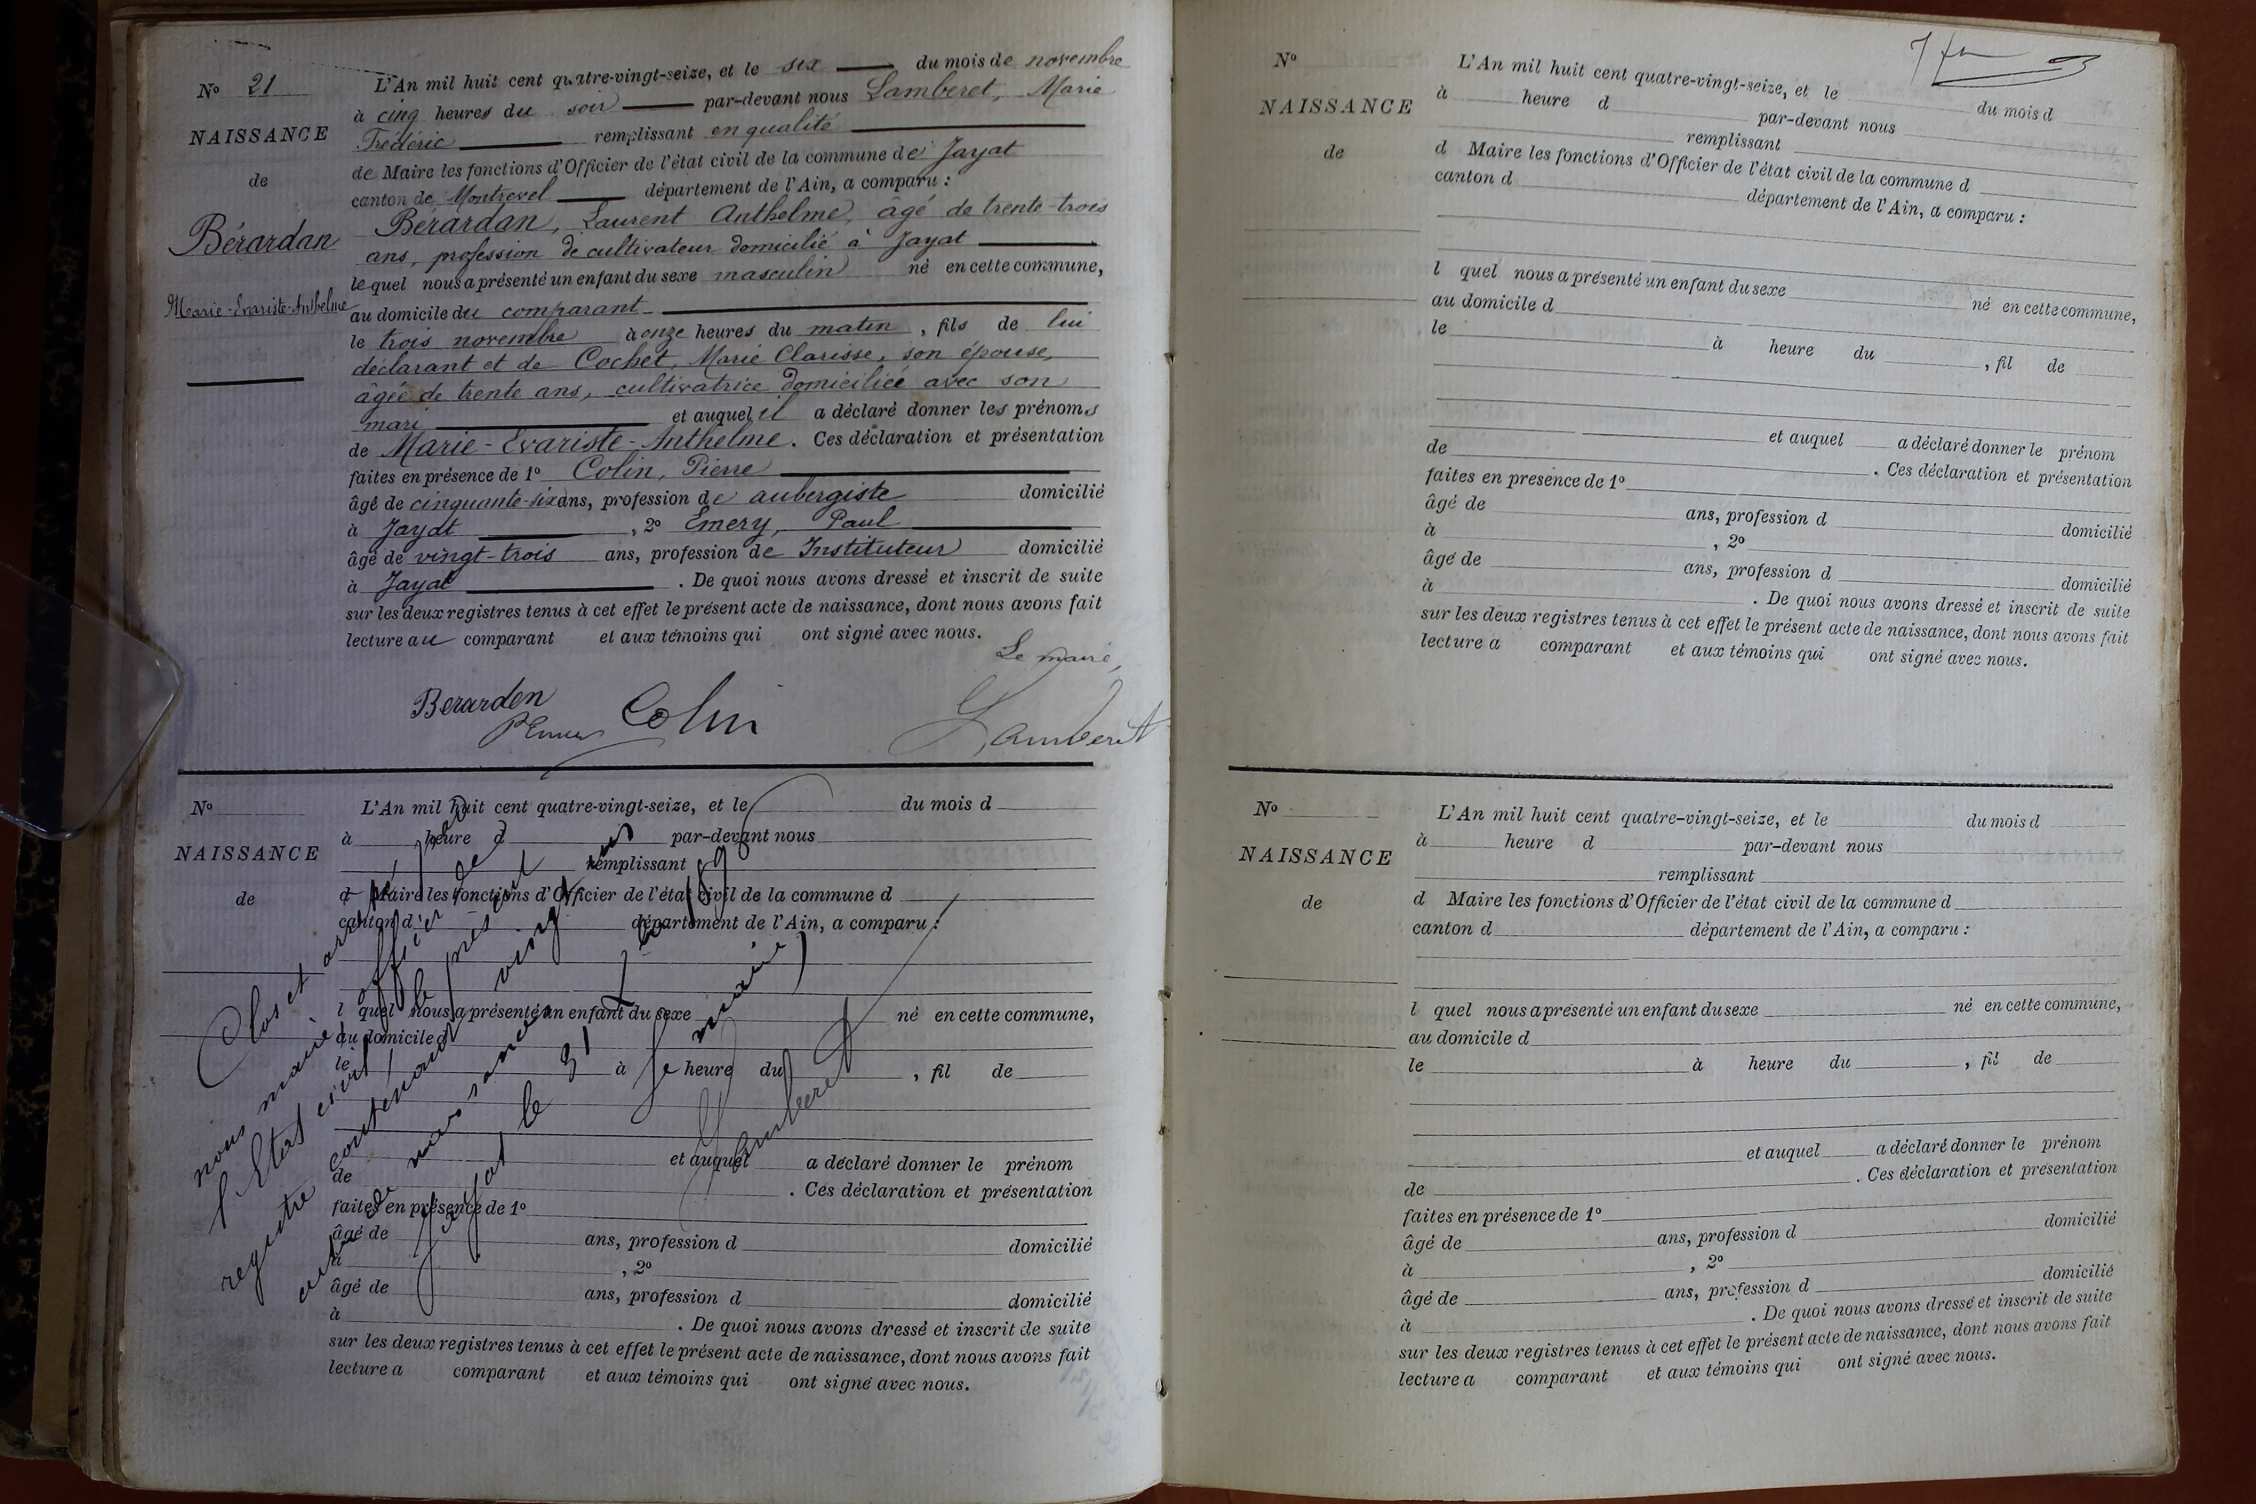 N° 21
NAISSANCE
de
Bérardan
Marie-Evariste-Anthelme
L'An mil huit cent quatre-vingt-seize, et le six du mois de novembre
à cinq heures du soir par-devant nous Lamberet, Marie
Frédéric remplissant en qualité
de Maire les fonctions d'Officier de l'état civil de la commune de Jayat
canton de Montrevel département de l'Ain, a comparu :
Bérardan, Laurent Anthelme, âgé de trente-trois
ans, profession de cultivateur domicilié à Jayat
lequel nous a présenté un enfant du sexe masculin né en cette commune,
au domicile du comparant
le trois novembre à onze heures du matin, fils de lui
déclarant et de Cochet, Marie Clarisse, son épouse,
âgée de trente ans, cultivatrice domiciliée avec son
mari et auquel il a déclaré donner les prénoms
de Marie-Evariste-Anthelme. Ces déclaration et présentation
faites en présence de 1° Colin, Pierre
âgé de cinquante-six ans, profession de aubergiste domicilié
à Jayat, 2° Emery, Paul
âgé de vingt-trois ans, profession de Instituteur domicilié
à Jayat. De quoi nous avons dressé et inscrit de suite
sur les deux registres tenus à cet effet le présent acte de naissance, dont nous avons fait
lecture au comparant et aux témoins qui ont signé avec nous.
Le maire,
Berarden
PEmery Colin
Lamberet
N°
NAISSANCE
de
L'An mil huit cent quatre-vingt-seize, et le du mois d
à heure d par-devant nous
remplissant
d Maire les fonctions d'Officier de l'état civil de la commune d
canton d département de l'Ain, a comparu :
l quel nous a présenté un enfant du sexe né en cette commune,
au domicile d
le à heure du , fil de
et auquel a déclaré donner le prénom
de . Ces déclaration et présentation
faites en présence de 1°
âgé de ans, profession d domicilié
à , 2°
âgé de ans, profession d domicilié
à . De quoi nous avons dressé et inscrit de suite
sur les deux registres tenus à cet effet le présent acte de naissance, dont nous avons fait
lecture a comparant et aux témoins qui ont signé avec nous.
Clos et arrêté par
nous maire officier de
l'Etat civil le présent
registre contenant vingt un
actes de naissances
Jayat le 31 Xbre 1896
Le maire
Lamberet
N°
NAISSANCE
de
L'An mil huit cent quatre-vingt-seize, et le du mois d
à heure d par-devant nous
remplissant
d Maire les fonctions d'Officier de l'état civil de la commune d
canton d département de l'Ain, a comparu :
l quel nous a présenté un enfant du sexe né en cette commune,
au domicile d
le à heure du , fil de
et auquel a déclaré donner le prénom
de . Ces déclaration et présentation
faites en présence de 1°
âgé de ans, profession d domicilié
à , 2°
âgé de ans, profession d domicilié
à . De quoi nous avons dressé et inscrit de suite
sur les deux registres tenus à cet effet le présent acte de naissance, dont nous avons fait
lecture a comparant et aux témoins qui ont signé avec nous.
N°
NAISSANCE
de
L'An mil huit cent quatre-vingt-seize, et le du mois d
à heure d par-devant nous
remplissant
d Maire les fonctions d'Officier de l'état civil de la commune d
canton d département de l'Ain, a comparu :
l quel nous a présenté un enfant du sexe né en cette commune,
au domicile d
le à heure du , fil de
et auquel a déclaré donner le prénom
de . Ces déclaration et présentation
faites en présence de 1°
âgé de ans, profession d domicilié
à , 2°
âgé de ans, profession d domicilié
à . De quoi nous avons dressé et inscrit de suite
sur les deux registres tenus à cet effet le présent acte de naissance, dont nous avons fait
lecture a comparant et aux témoins qui ont signé avec nous.